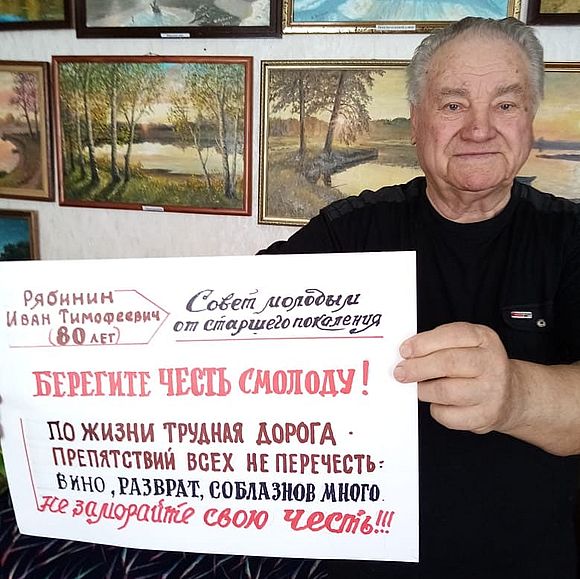 Рябинин
Иван Тимофеевич
(80 лет)
Совет молодым
от старшего поколения
БЕРЕГИТЕ ЧЕСТЬ СМОЛОДУ!
ПО ЖИЗНИ ТРУДНАЯ ДОРОГА.
ПРЕПЯТСТВИЙ ВСЕХ НЕ ПЕРЕЧЕСТЬ:
ВИНО, РАЗВРАТ, СОБЛАЗНОВ МНОГО.
Не замарайте свою честь!!!